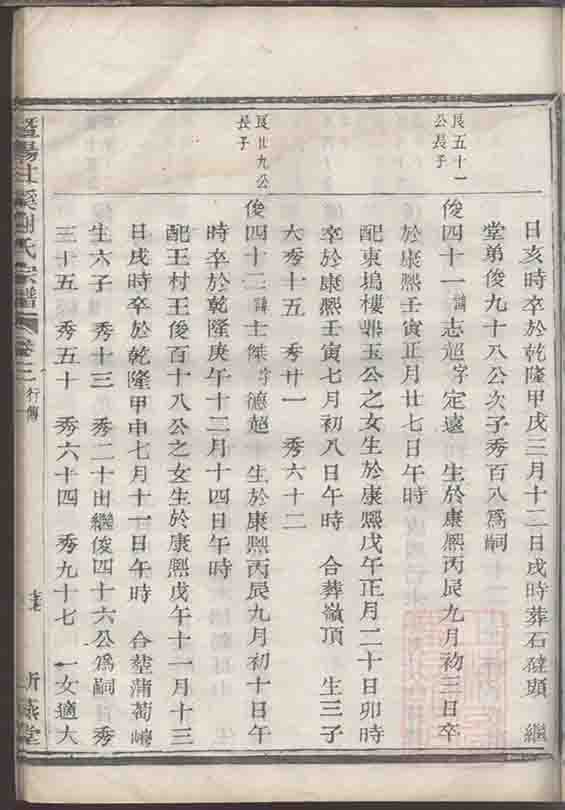 日亥時卒於乾隆甲戌三月十二日戌時葬石礎頭　繼
堂弟俊九十八公次子秀百八為嗣
艮五十一
公長子
俊四十一諱志超字定遠　生於康熙丙辰九月初三日卒
於康熙壬寅正月廿七日午時
配東塢樓鼎玉公之女生於康熙戊午正月二十日卯時
卒於康熙壬寅七月初八日午時　合葬嶺頂　生三子
六秀十五　秀廿一　秀六十二
艮廿九公
長子
俊四十二諱士傑字德超　生於康熙丙辰九月初十日午
時卒於乾隆庚午十二月十四日午時
配王村王俊百十八公之女生於康熙戊午十一月十三
日戌時卒於乾隆甲申七月十一日午時　合塟蒲萄㠗
生六子　秀十三　秀二十出繼俊四十六公為嗣　秀
三十五　秀五十　秀六十四　秀九十七　一女適大
暨陽　溪謝氏宗譜　卷二　行傳